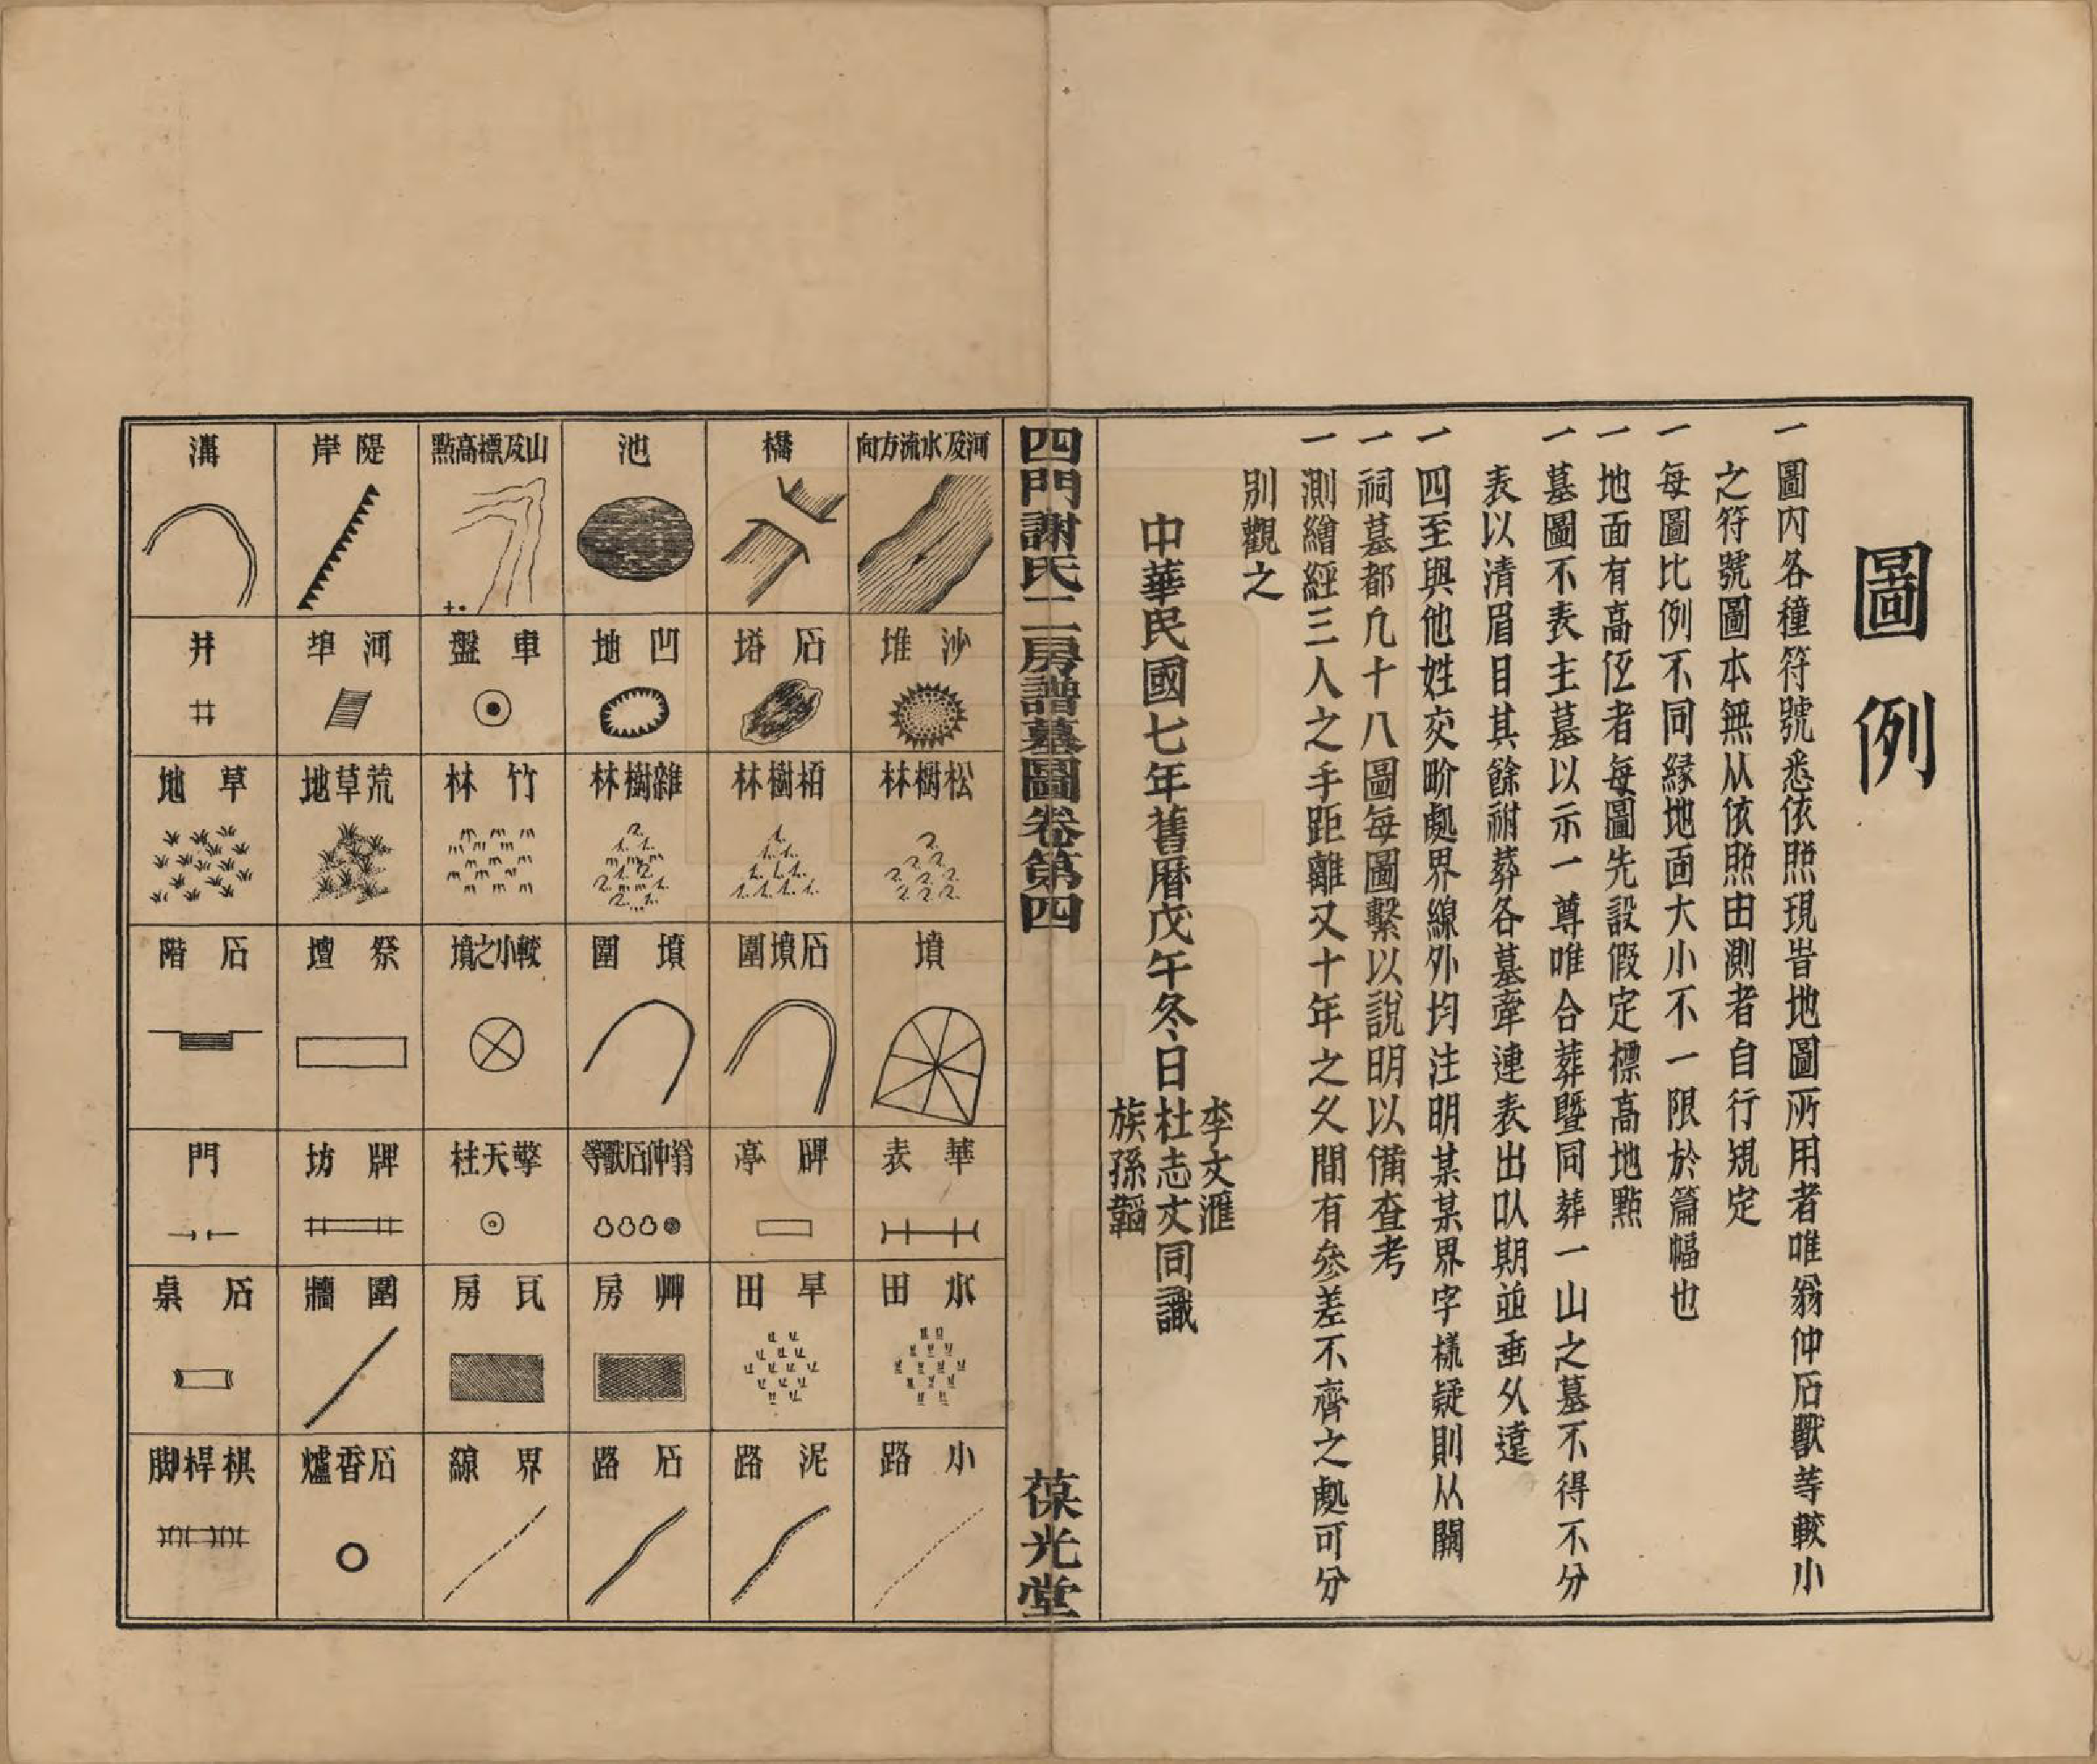 圖例
一圖內各種符號悉依照現旹地圖所用者唯翁仲石獸等較小
之符號圖本無从依照由測者自行規定
一每圖比例不同緣地面大小不一限於篇幅也
一地面有高低者每圖先設假定標高地點
一墓圖不表主墓以示一尊唯合葬暨同葬一山之墓不得不分
表以清眉目其餘祔葬各墓牽連表出㕥期並垂久遠
一四至與他姓交畍處界線外均注明某某界字樣疑則从闕
一祠墓都凡十八圖每圖繫以說明以備查考
一測繪經三人之手距離又十年之久間有參差不齊之處可分
別觀之
中華民國七年舊曆戊午冬日
李文滙
杜志文同識
族孫韜
四門謝氏二房譜墓圖卷第四
葆光堂
河及水流方向
橋
池
山及標高點
隄岸
溝
沙堆
石塔
凹地
車盤
河埠
井
松樹林
栢樹林
雜樹林
竹林
荒草地
草地
墳
石墳圍
墳圍
較小之墳
祭壇
石階
華表
碑亭
翁仲石獸等
擎天柱
牌坊
門
水田
旱田
艸房
瓦房
圍牆
石桌
小路
泥路
石路
界線
石香爐
棋桿脚